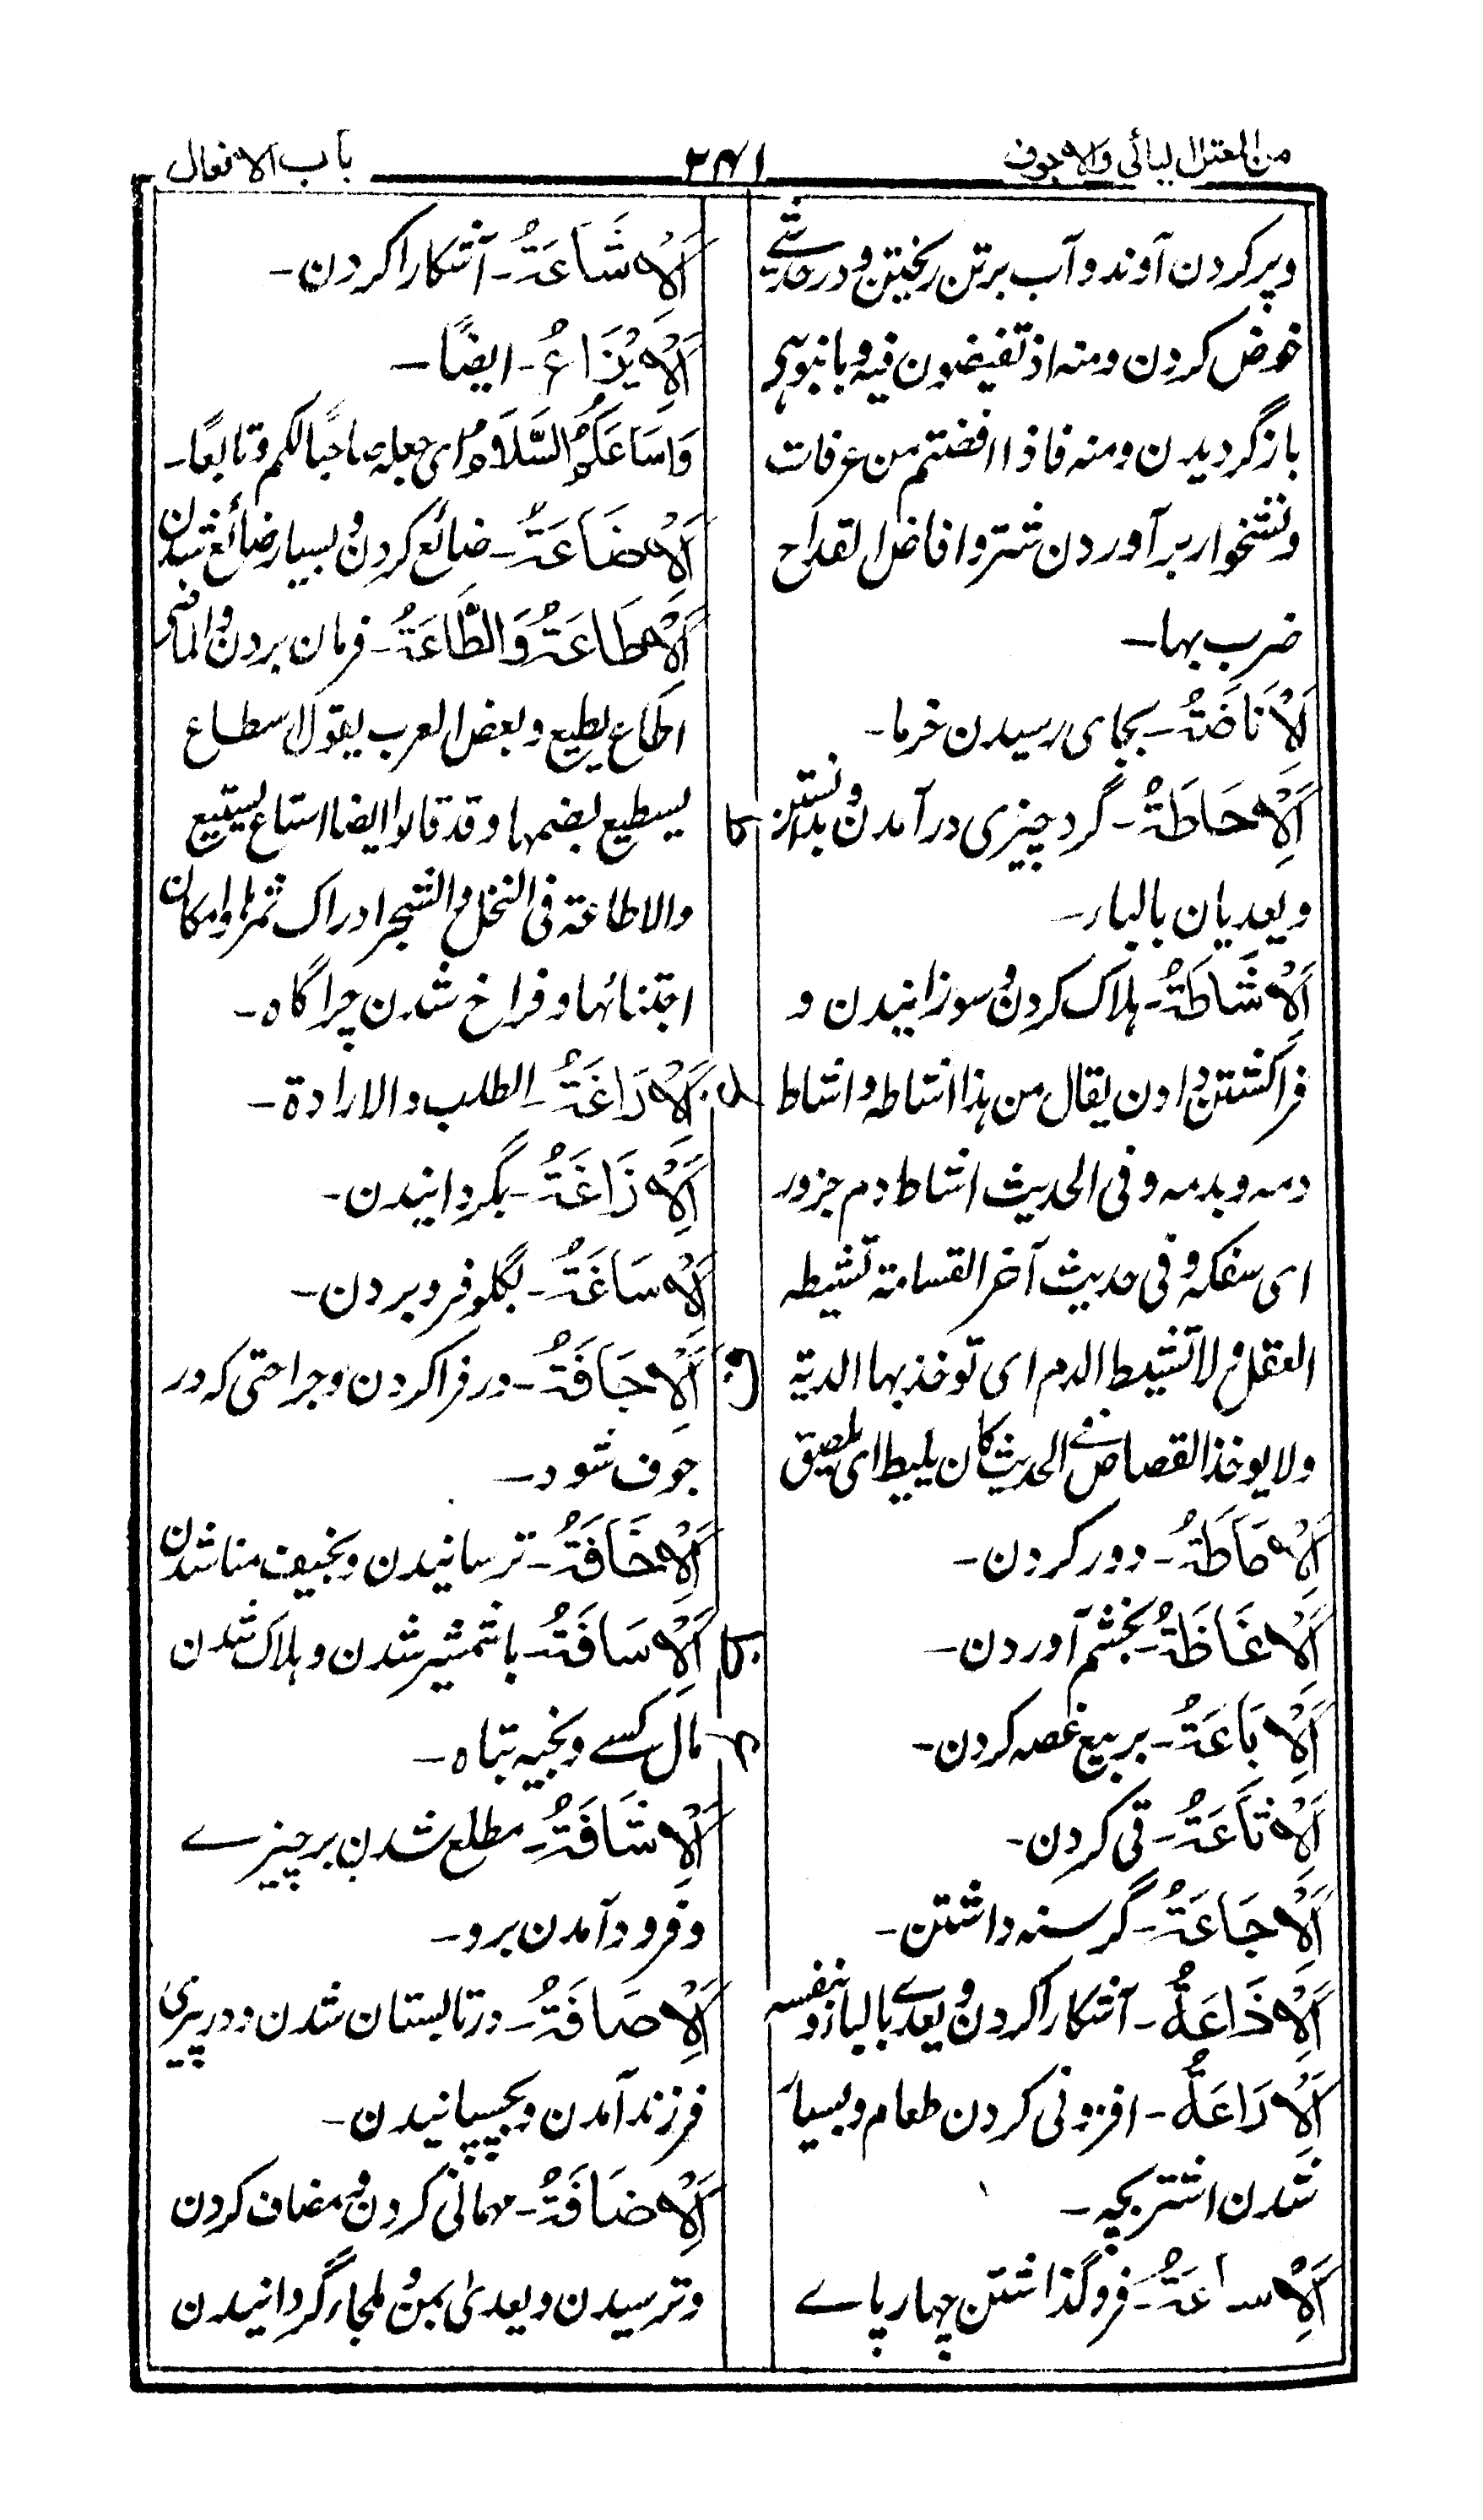 من المعتل اليائى والاجوف
٢٦١
باب الافعال
وپر کردن آوند و آب برتن ریختن و در حدیثے
خوض کردن ومنه اذ تفیضون فیه و بانبوهی
بازگردیدن ومنه فاذا افضتم من عرفات
ونشخوار برآوردن شتر وافاض القداح
ضرب بها۔
اَلْاِنَاضَةُ۔ بجای رسیدن خرما۔
اَلْاِحَاطَةُ۔ گرد چیزی درآمدن و بدانستن
ویعدیان بالباء۔
اَلْاِشَاطَةُ۔ ہلاک کردن و سوزانیدن و
فراکشتن دادن یقال من ہذا اشاطه واشاط
دمه وبدمه وفی الحدیث اشاط دم جزور
ای سفکه وفی حدیث آخر القسامة تشیط
العقل ولا تشیط الدم ای توخذ بها الدیة
ولا یوخذ القصاص وفی الحدیث کان یلیط ای یلصیق
اَلْاِمَاطَةُ۔ دور کردن۔
اَلْاِغَاظَةُ۔ بخشم آوردن۔
اَلْاِبَاعَةُ۔ بر بیع عرصه کردن۔
اَلْاِتَاعَةُ۔ قی کردن۔
اَلْاِجَاعَةُ۔ گرسنه داشتن۔
اَلْاِذَاعَةُ۔ آشکارا کردن و یعدی بالباء و بنفسه
اَلْاِرَاعَةُ۔ افزونی کردن طعام و بسیار
شدن اشتر بچه۔
اَلْاِسَاعَةُ۔ فروگذاشتن چهار پاے
اَلْاِشَاعَةُ۔ آشکارا کردن۔
اَلْاِیْزَاعُ۔ ایضًا۔
وَاَسَاعَکُمُ السَّلَامُ ای جعله صاحبًا لکم وتابعًا۔
اَلْاِضَاعَةُ۔ ضائع کردن و بسیار ضائع شدن
اَلْاِطَاعَةُ وَالطَّاعَةُ۔ فرمان بردن والماضی
اطاع یطیع وبعض العرب یقول اسطاع
یسطیع بضمها وقد قالوا ایضا استاع یستیع
والاطاعة فی النخل والشجر ادراک ثمرها وامکان
اجتنائها و فراخ شدن چراگاه۔
اَلْاِرَاغَةُ۔ الطلب والارادة۔
اَلْاِزَاغَةُ۔ بگردانیدن۔
اَلْاِسَاغَةُ۔ بگلو فرو بردن۔
اَلْاِجَافَةُ۔ در فرا کردن و جراحتی که در
جوف شود۔
اَلْاِخَافَةُ۔ ترسانیدن و بخیف منا شدن
اَلْاِسَافَةُ۔ با شمشیر شدن و ہلاک شدن
مال کسے و بخیه تباه۔
اَلْاِشَافَةُ۔ مطلع شدن بر چیزے
و فرود آمدن برو۔
اَلْاِصَافَةُ۔ در تابستان شدن و در پیری
فرزند آمدن و بچسپانیدن۔
اَلْاِضَافَةُ۔ مهمانی کردن و مضاف کردن
و ترسیدن و یعدی بمن و ملجاء گردانیدن